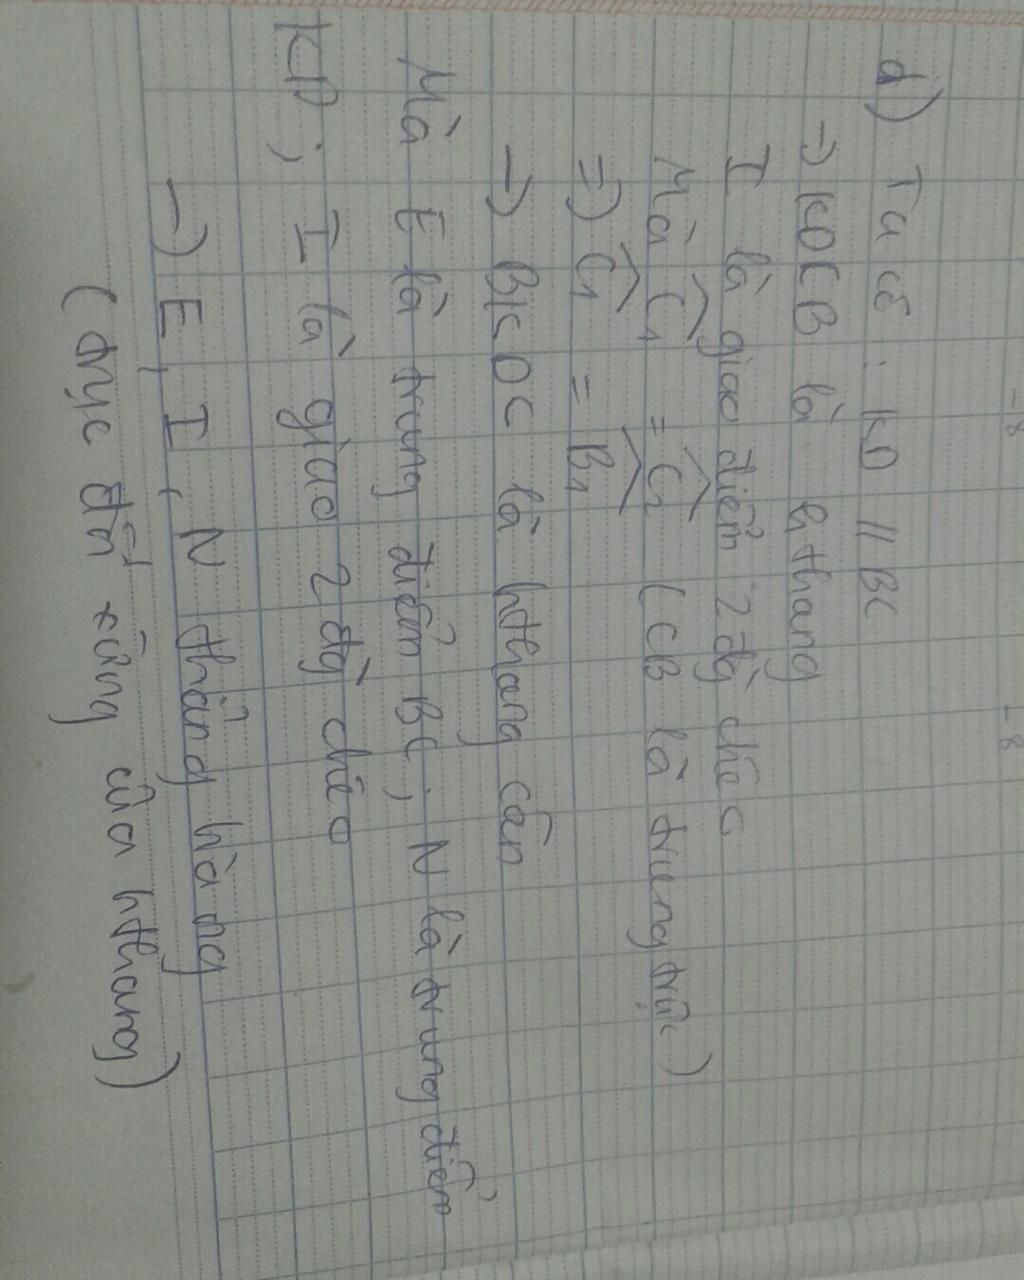 d) Ta có : KD // BC
→ KDCB là hthang
I là giao điểm 2 đg chéo
Mà C₁ = C₂ (CB là trung trực)
=> C₁ = B₁
→ BKDC là hthang cân
Mà E là trung điểm BC, N là trung điểm
KD, I là giao 2 đg chéo
→ E, I, N thẳng hàng
(trục đối xứng của hthang)